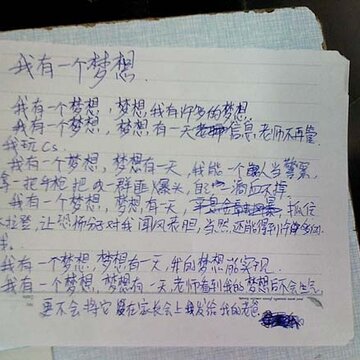 我有一个梦想.
我有一个梦想,梦想,我有许多的梦想.
我有一个梦想,梦想有一天 信息,老师不再管
我玩Cs.
我有一个梦想,梦想有一天,我能一个人当警察,
拿一把手枪把 一群匪爆头,自己一滴血不掉.
我有一个梦想,梦想有一天, 抓住
本拉登,让恐怖分 对我闻风丧胆,当然,还能得到许多
我有一个梦想,梦想有一天,我的梦想能实现.
我有一个梦想,梦想有一天,老师看到我的梦想后不会生气.
更不会将它 在家长会上 发给我的老爸.